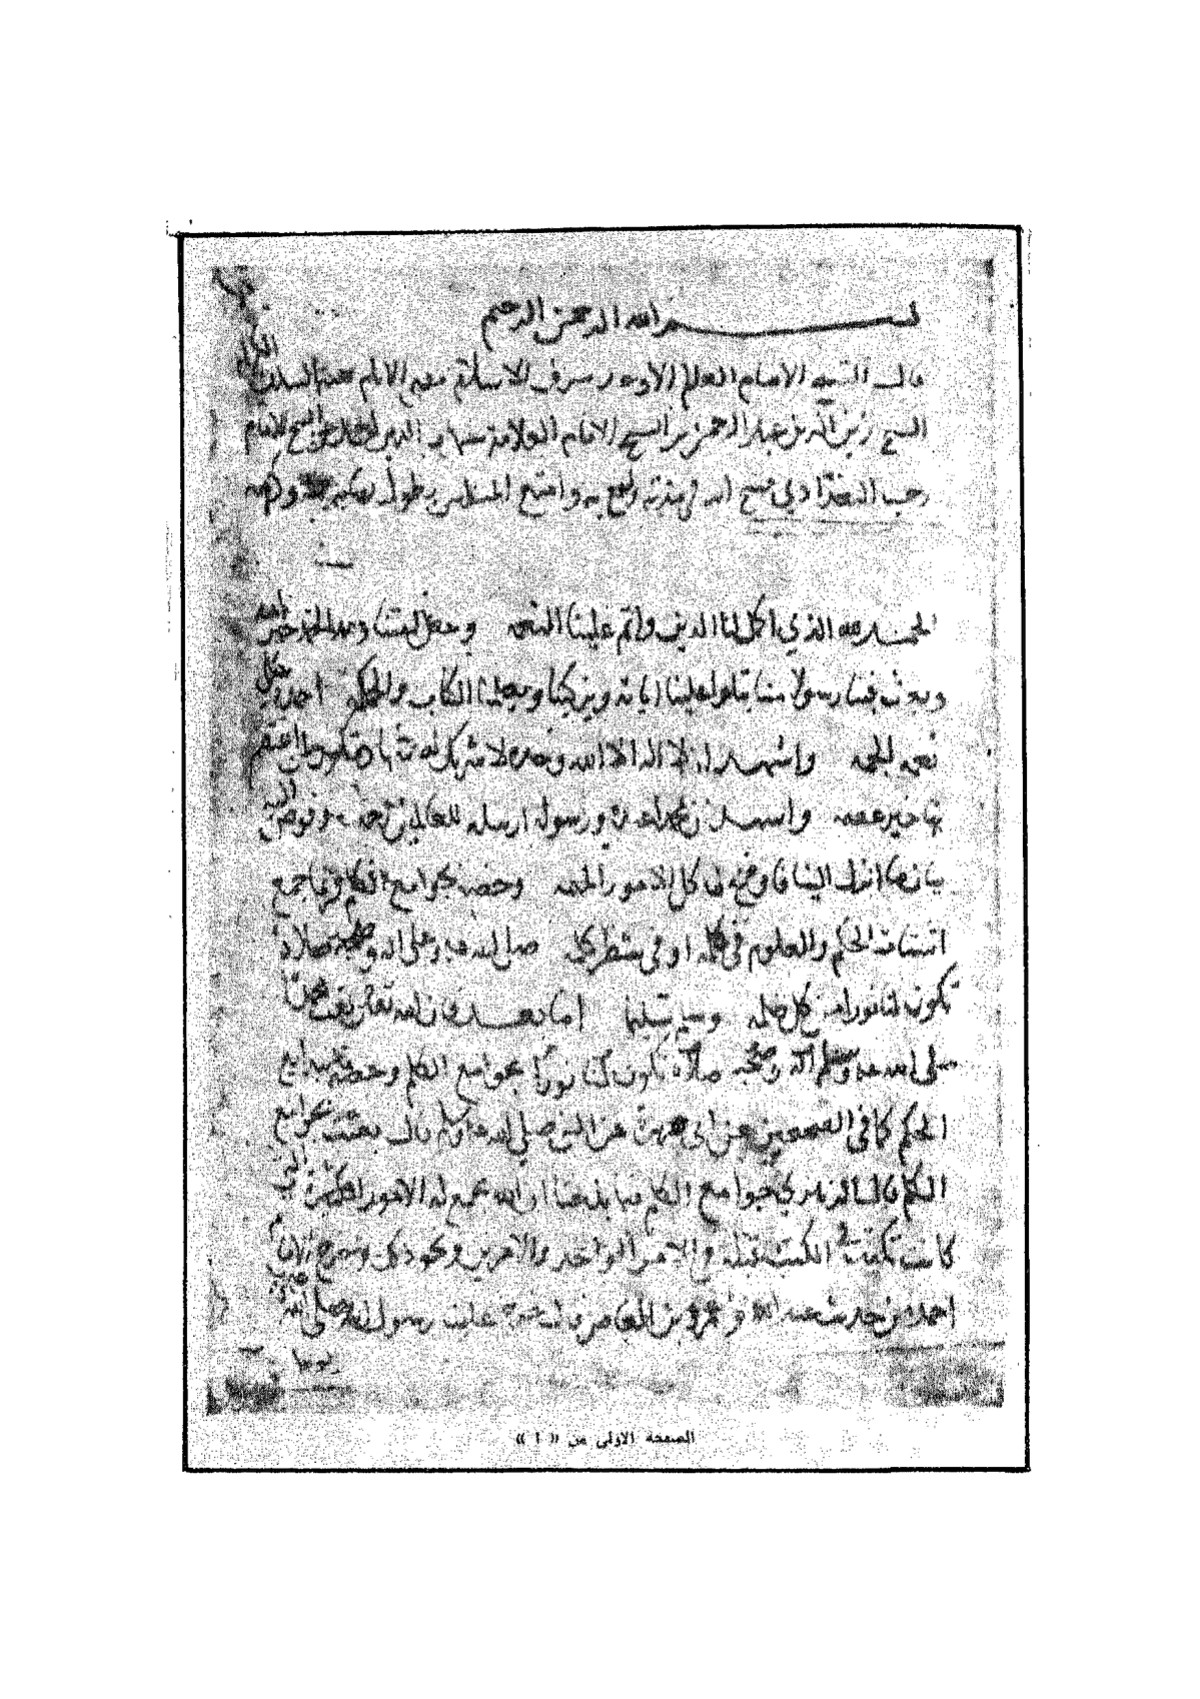 بسم الله الرحمن الرحيم
قال الشيخ الامام العالم الاوحد شرف الاسلام مفتي الانام السلف
الشيخ زين الدين عبد الرحمن بن الشيخ الامام العلامة شهاب الدين الشيخ الامام
رجب البغدادي فسح الله في مدته ونفع به وامتع المسلمين بطول
الحمد لله الذي اكمل لنا الدين واتم علينا النعمه وجعل امتنا ولله الحمد خير امه
وبعث فينا رسولا منا يتلوا علينا اياته ويزكينا ويعلمنا الكتاب والحكمه احمده على
نعمه الجمه واشهد ان لا اله الا الله وحده لا شريك له شهادة تكون لمن اعتصم
بها خير عصمه واشهد ان محمدا عبده ورسوله ارسله للعالمين رحمه وفوض اليه
بيان ما انزل الينا فاوضح لنا كل الامور المهمه وخصه بجوامع الكلم فربما جمع
اشتات الحكم والعلوم في كلمه او في شطر كلمه صلى الله عليه وعلى اله وصحبه صلاة
تكون لنا نورا من كل ظلمه وسلم تسليما اما بعد فان الله تعالى بعث محمدا
صلى الله عليه وسلم وآله وصحبه صلاة تكون لنا نورا بجوامع الكلم وخصه ببدايع
الحكم كما في الصحيحين عن ابي هريرة عن النبي صلى الله عليه وسلم قال بعثت بجوامع
الكلم قال الزهري جوامع الكلم فيما بلغنا ان الله يجمع له الامور الكثيرة التي
كانت تكتب في الكتب قبله في الامر الواحد والامرين ونحو ذلك وخرج الامام
احمد من حديث عبد الله بن عمرو بن العاص قال خرج علينا رسول الله صلى الله عليه
يوما
الصفحة الأولى من « أ »